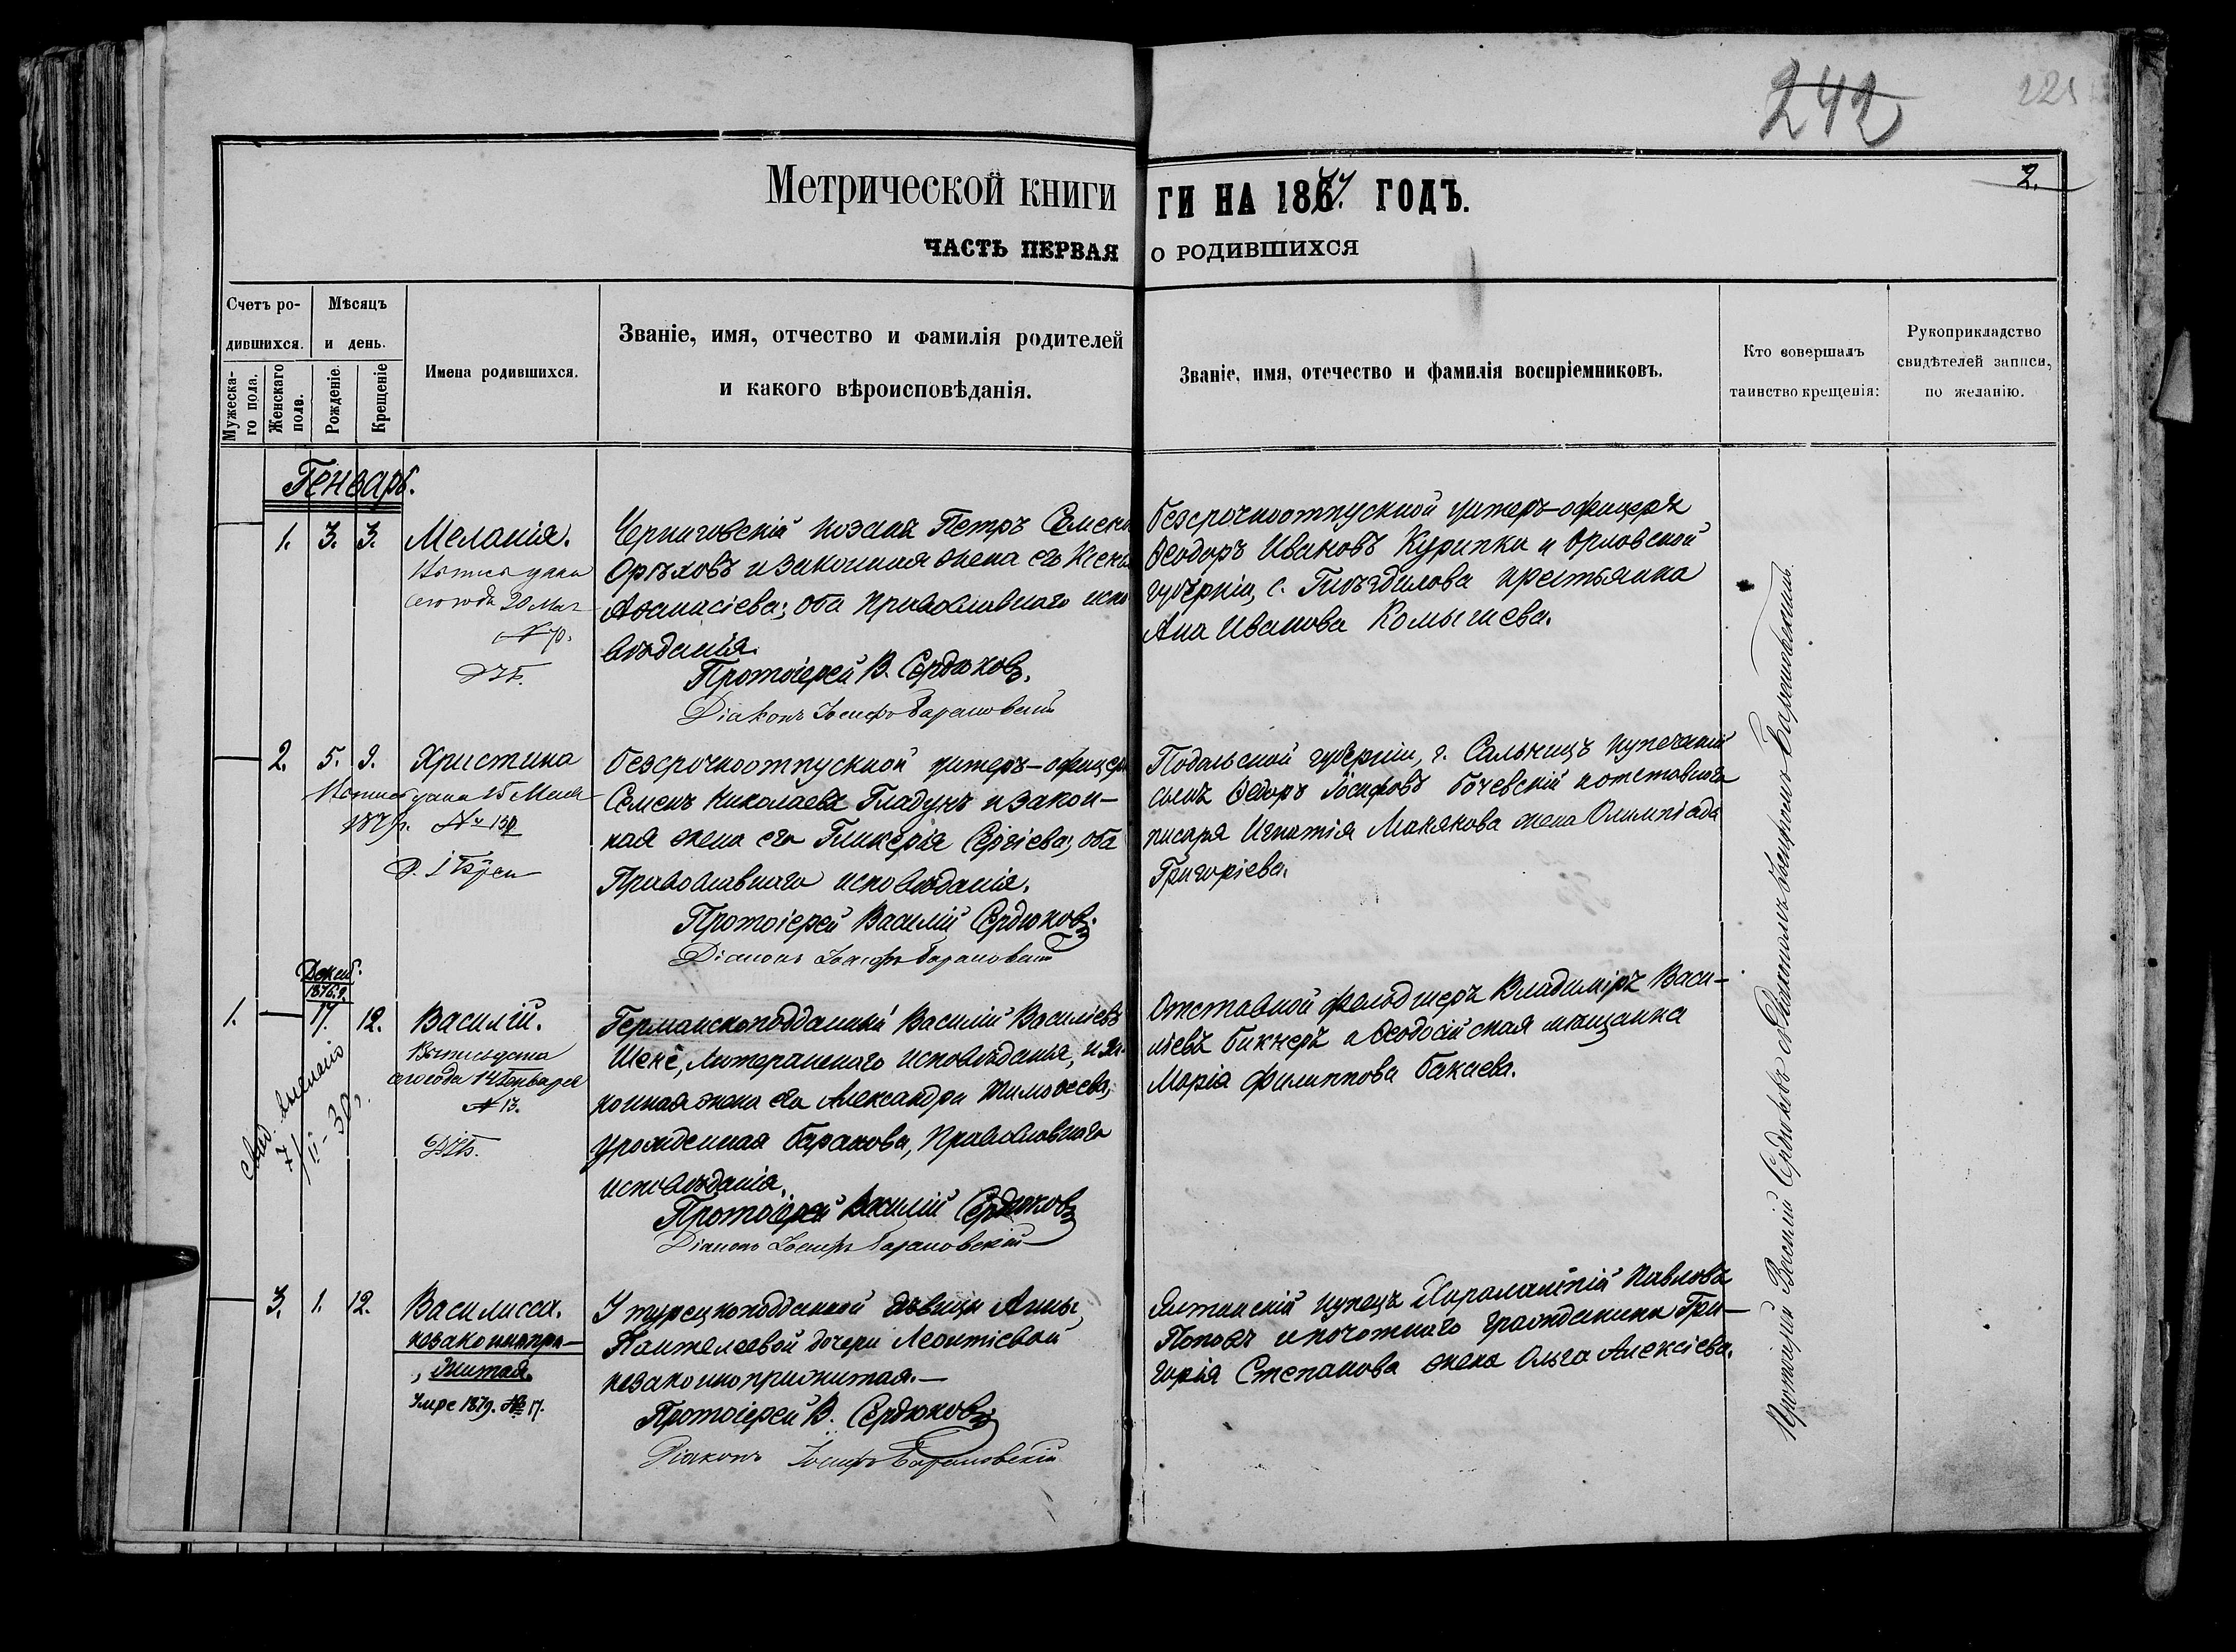 242
2.
Метрической книги
ги на 1877. годъ.
ЧАСТЬ ПЕРВАЯ
О РОДИВШИХСЯ
Счетъ ро-
дившихся.
Мужеска-
го пола.
Женскаго
пола.
Мѣсяцъ
и день.
Рожденіе.
Крещеніе
Имена родившихся.
Званіе, имя, отчество и фамилія родителей
и какого вѣроисповѣданія.
Званіе, имя, отечество и фамилія воспріемниковъ.
Кто совершалъ
таинство крещенія:
Рукоприкладство
свидѣтелей записи,
по желанію.
Генварь.
1. 3. 3.
Меланія.
сего года 20 Мая
Черниговскій козакъ Петръ Семено
Орѣховъ и законная жена его Ксені
Аѳанасіева; оба Православнаго испо
вѣданія.
Протоіерей В. Сердюковъ.
Діаконъ Іосифъ Барановскій
безсрочноотпускной унтеръ-офицеръ
Ѳеодоръ Ивановъ Курипка и Орловской
губерніи, с. Гнѣздилова крестьянка
Ана Иванова Комычева.
2. 5. 9.
Христина
безсрочноотпускной унтеръ-офицеръ
Семенъ Николаевъ Гладунъ и закон-
ная жена его Гликерія Сергіева; оба
Православнаго исповѣданія.
Протоіерей Василій Сердюковъ.
Діаконъ Іосифъ Барановскій
Подольской губерніи, г. Сальницъ купеческій
сынъ Ѳедоръ Іосифовъ Бочевскій и отставнаго
писаря Игнатія Макякова жена Олимпіада
Григоріева.
Декаб.
1876 г.
1. 17. 12.
Василій.
Выпись дана
сего года 14 Генваря
№ 13.
7/II-30
Германскоподданный Василій Васильевъ
Шене, Лютеранскаго исповѣданія, и за-
конная жена его Александра Тимоѳеева,
урожденная Баракова, Православнаго
исповѣданія.
Протоіерей Василій Сердюковъ
Діаконъ Іосифъ Барановскій
Отставной фельдшеръ Владиміръ Васи-
льевъ Бикнеръ и Ѳеодосійская мѣщанка
Марія Филиппова Бакаева.
3. 1. 12.
Василисса.
незаконнопри-
житая.
Умре 1879. № 17.
У турецкоподданной дѣвицы Анны,
Пантелеевой дочери Леонтіевой
незаконноприжитая.—
Протоіерей В. Сердюковъ
Діаконъ Іосифъ Барановскій
Ялтинскій купецъ Харалампій Павловъ
Поповъ и почотнаго гражданина Гри-
горія Степанова жена Ольга Алексіева.
Протоіерей Василій Сердюковъ съ Діакономъ Іосифомъ Барановскимъ.